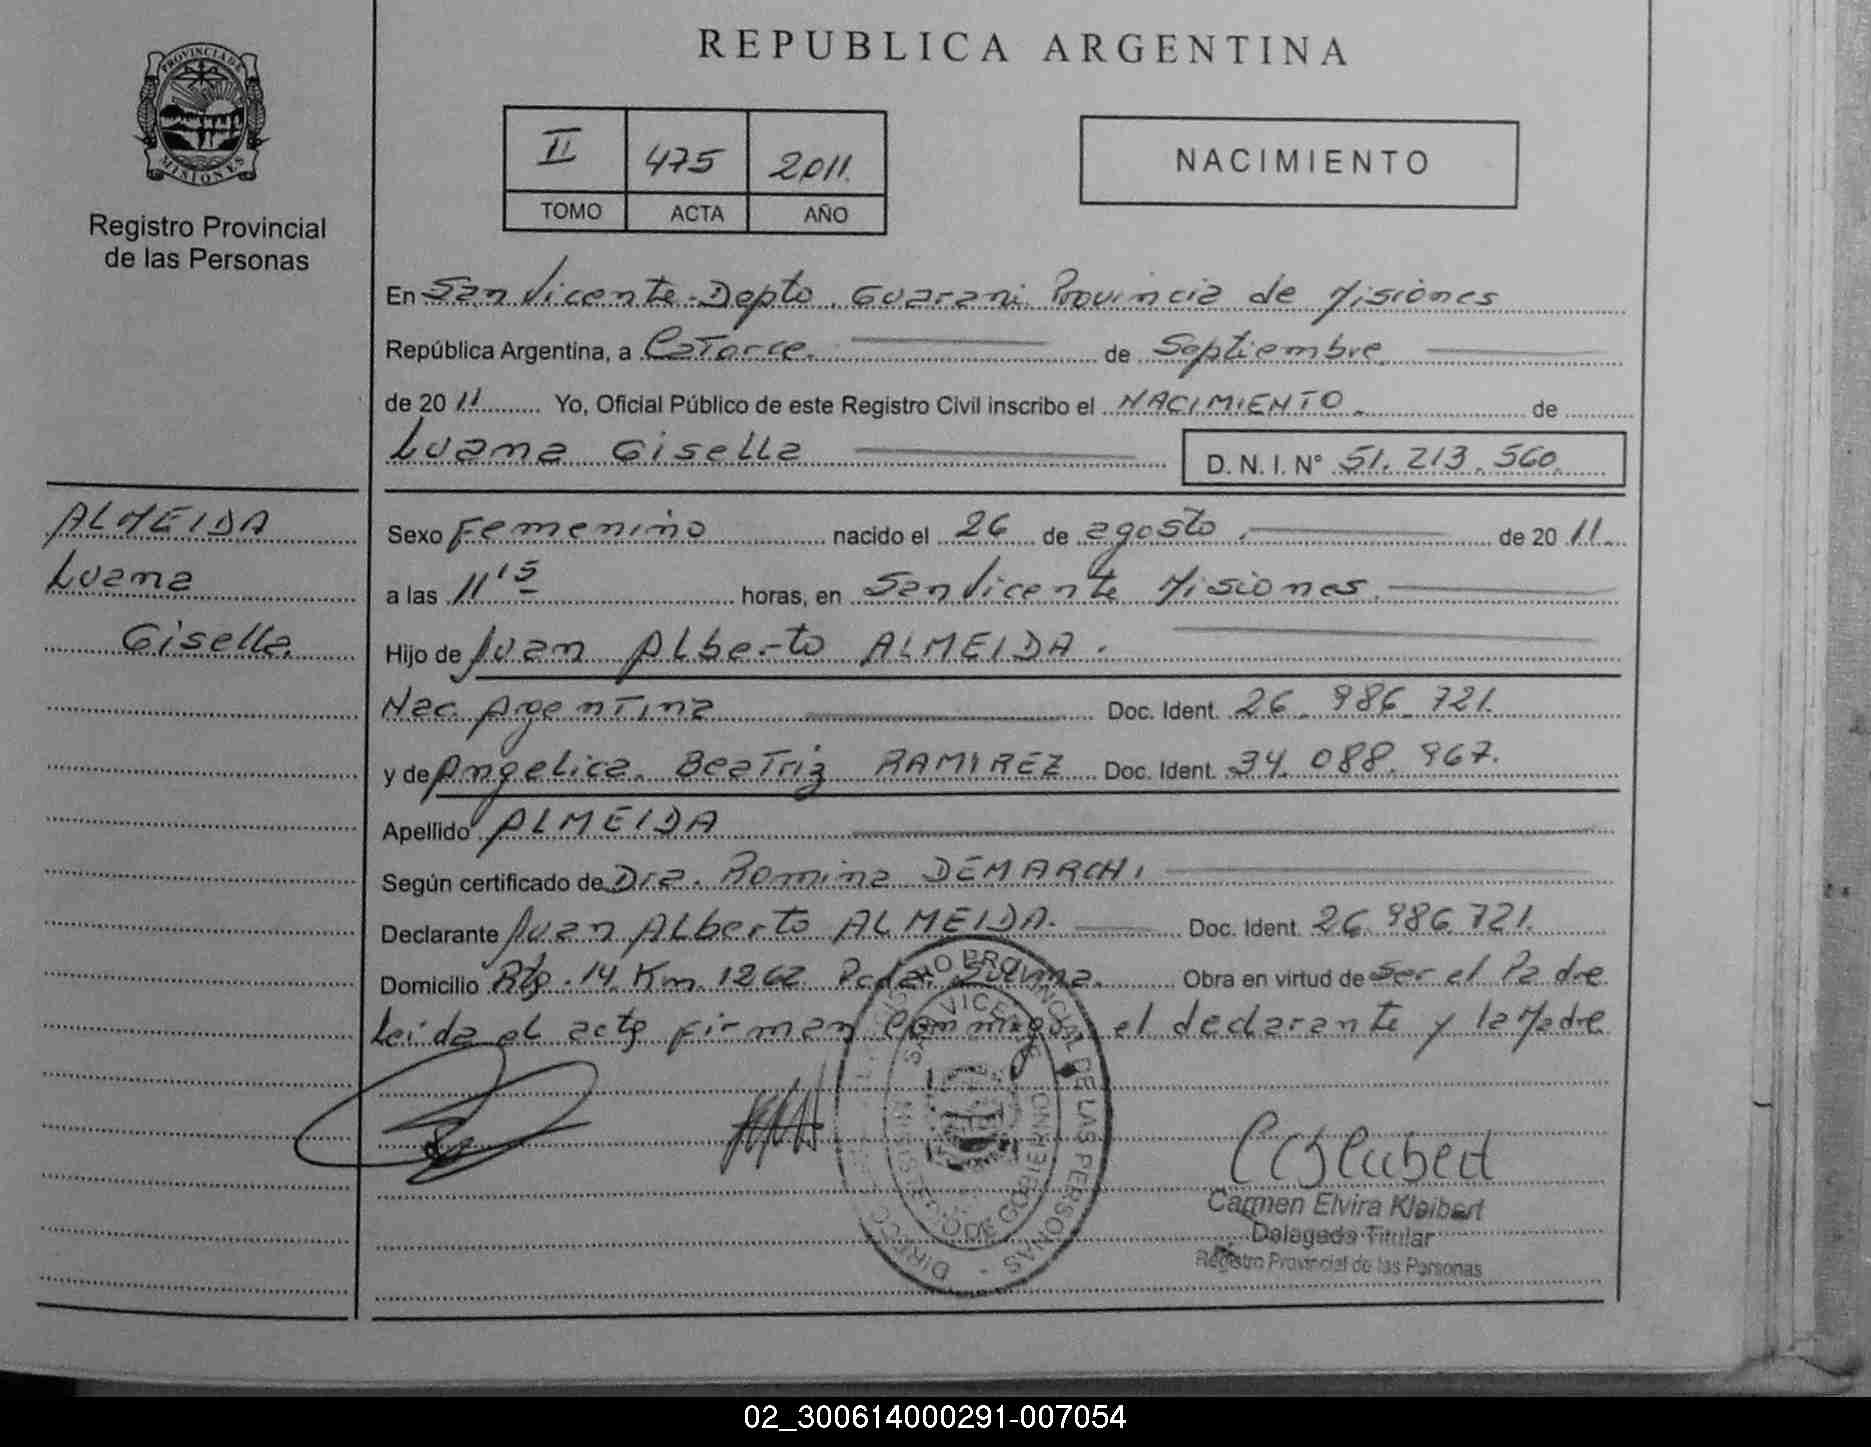 REPUBLICA ARGENTINA
PROVINCIA DE
MISIONES
Registro Provincial
de las Personas
II 475 2011.
TOMO ACTA AÑO
NACIMIENTO
En San Vicente. Depto. Guarani Provincia de Misiones
República Argentina, a Catorce. de Septiembre
de 2011 Yo, Oficial Público de este Registro Civil inscribo el NACIMIENTO. de
Luana Gisella D. N. I. N° 51.213.560
ALMEIDA
Luana
Gisella
Sexo Femenino nacido el 26 de agosto de 2011
a las 11 15 horas, en San Vicente Misiones.
Hijo de Juan Alberto ALMEIDA.
Nac. Argentina Doc. Ident. 26.986.721.
y de Angelica Beatriz RAMIREZ Doc. Ident. 34.088.967.
Apellido ALMEIDA
Según certificado de Dra. Romina DEMARCHI
Declarante Juan Alberto ALMEIDA. Doc. Ident. 26.986.721.
Domicilio 14 Km. 1262 Obra en virtud de Ser el Padre
Leida el acta firman conmigo el declarante y la Madre
Carmen Elvira Kleibert
Delegada Titular
Registro Provincial de las Personas
02_300614000291-007054